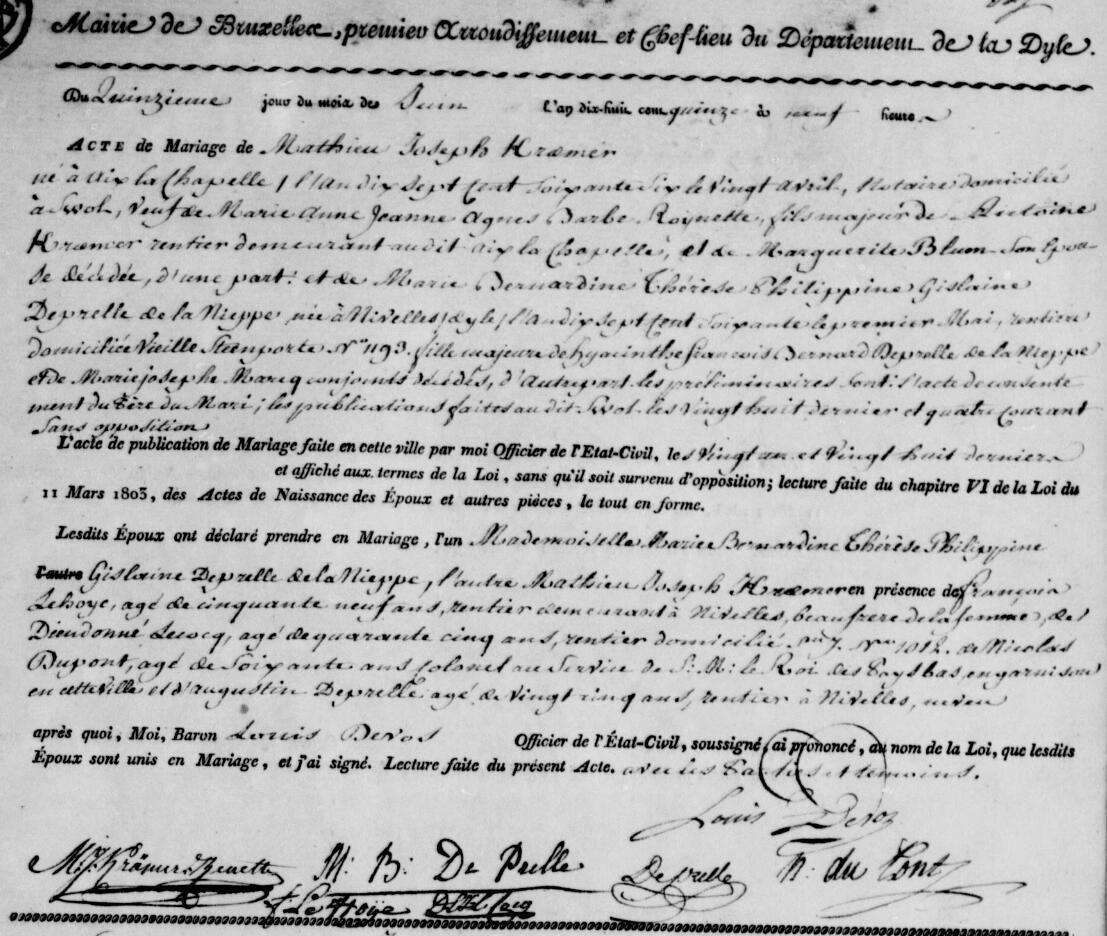 Mairie de Bruxelles, premier Arrondissement et Chef-lieu du Département de la Dyle.
Du Quinzieme jour du mois de Juin l'an dix-huit cent quinze à neuf heures
ACTE de Mariage de Mathieu Joseph Kræmer
né à Aix la Chapelle, l'An dix sept Cent Soixante Six le Vingt Avril, Notaire domicilié
à Swol, Veuf de Marie Anne Jeanne Agnes Barbe Roynette, fils majeur de Antoine
Kræmer rentier demeurant audit Aix la Chapelle, et de Marguerite Blum Son Epou-
se décédée, d'une part. et de Marie Bernardine Thérèse Philippine Gislaine
Deprelle de la Nieppe, née à Nivelles, dyle, l'an dix sept Cent Soixante le premier Mai, rentiere
domiciliée Vieille Steenporte N° 1193. fille majeure de hyacinthe françois Bernard Deprelle de la Nieppe
et de Marie josephe Marcq conjoints décédés, d'Autre part. les préliminaires Sont: l'acte de consente
ment du Père du Mari; les publications faites au dit Swol les Vingt huit dernier et quatre Courant
Sans opposition
L'acte de publication de Mariage faite en cette ville par moi Officier de l'Etat-Civil, les Vingt un et Vingt huit dernier
et affiché aux termes de la Loi, sans qu'il soit survenu d'opposition; lecture faite du chapitre VI de la Loi du
11 Mars 1803, des Actes de Naissance des Époux et autres pièces, le tout en forme.
Lesdits Époux ont déclaré prendre en Mariage, l'un Mademoiselle Marie Bernardine Thérèse Philippine
l'autre Gislaine Deprelle de la Nieppe, l'autre Mathieu Joseph Kræmer en présence de François
Lehoye, agé de cinquante neuf ans, rentier demeurant à Nivelles, beaufrere de la femme, de
Dieudonné Lecocq, agé de quarante cinq ans, rentier domicilié N° 1012. de Nicolas
Dupont, agé de Soixante ans Colonel au Service de S: M: le Roi des Pays bas, en garnison
en cette Ville et d'augustin Deprelle agé de Vingt cinq ans, rentier à Nivelles, neveu
après quoi, Moi, Baron Louis Devos Officier de l'État-Civil, soussigné, ai prononcé, au nom de la Loi, que lesdits
Époux sont unis en Mariage, et j'ai signé. Lecture faite du présent Acte. avec les Parties et temoins.
Louis Devos
M. J. Krämer M: B: De Prelle Deprelle N: du Pont